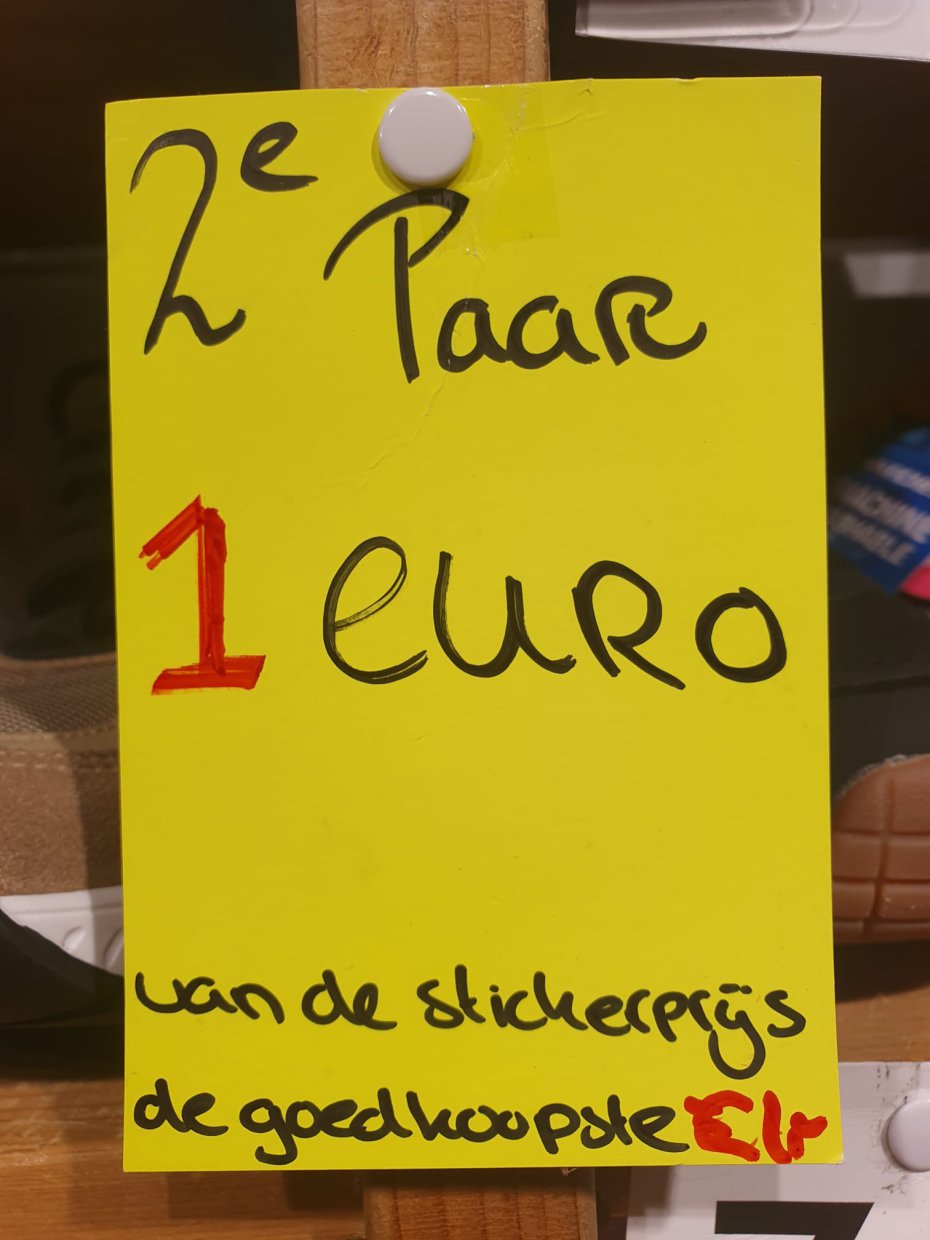 2e Paar
1 euro
van de stickerprijs
de goedkoopste €1,-
MACHINE